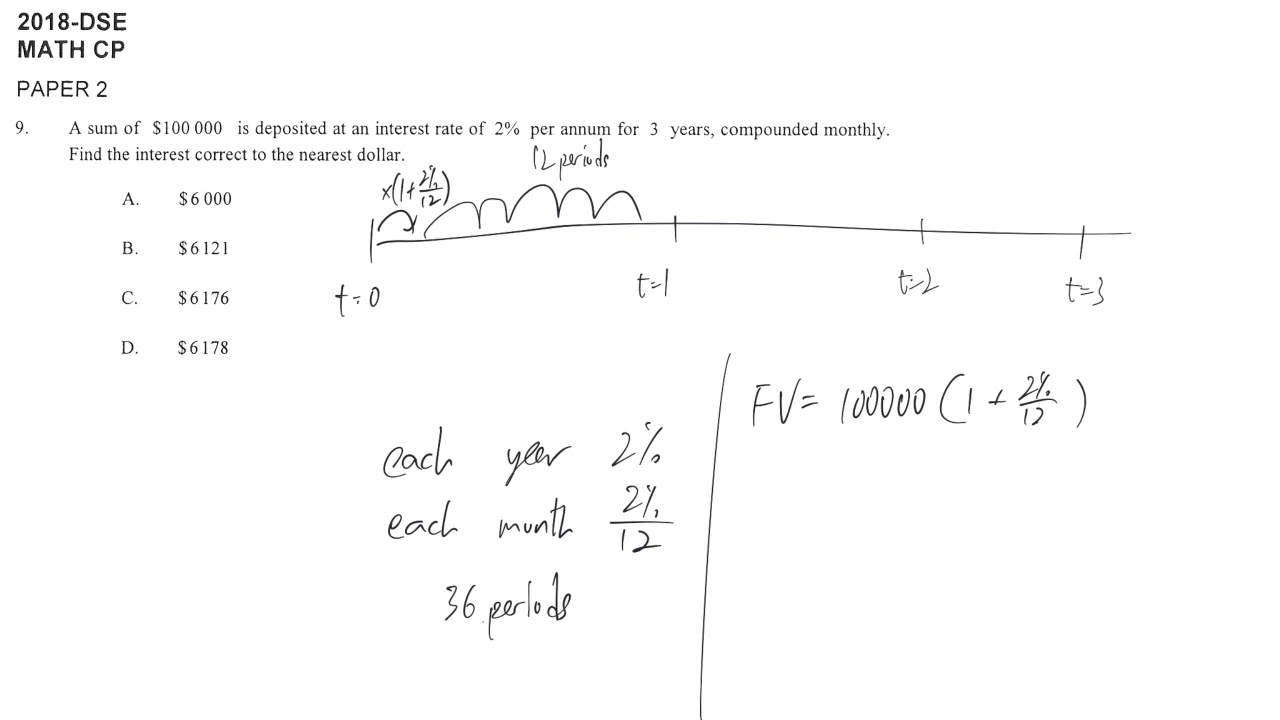 2018-DSE
MATH CP
PAPER 2
9. A sum of $100 000 is deposited at an interest rate of 2% per annum for 3 years, compounded monthly.
Find the interest correct to the nearest dollar.
12 periods
×(1+2%/12)
A. $6 000
B. $6 121
C. $6 176
D. $6 178
t=0
t=1
t=2
t=3
each year 2%
each month 2%/12
36 periods
FV= 100000 (1 + 2%/12 )